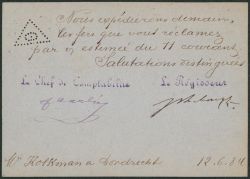 Nous expédierons demain,
les fers que vous réclamez
par v/ estimée du 11 courant
Salutations distinguées
Le Chef de Comptabilité Le Régisseur
Mr Kolkman a Dordrecht 12.6.84